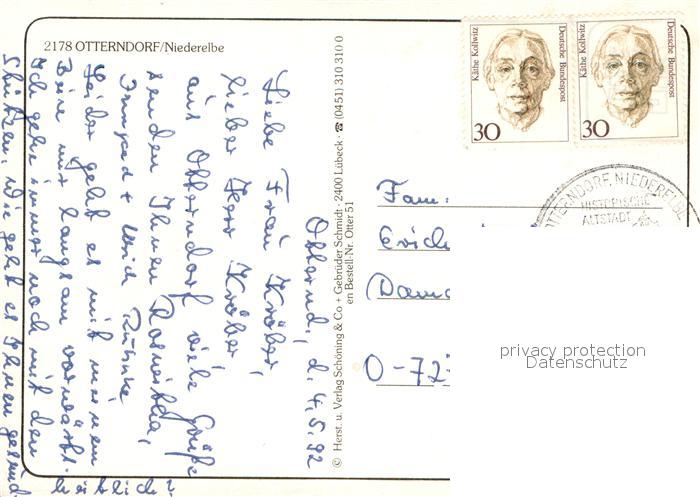 2178 OTTERNDORF/Niederelbe
Otternd., d. 4.5.92
Liebe Frau Kröber,
lieber Herr Kröber,
aus Otterndorf viele Grüße
senden Ihnen Roswitha,
Irmgard + Ulrich
Leider geht es mit meinem
Bein nur langsam vorwärts.
Ich gehe immer noch mit den
Stützen. Wie geht es Ihnen gesund-
heitlich?
© Herst. u. Verlag Schöning & Co + Gebrüder Schmidt · 2400 Lübeck · ☎ (0451) 310 310 0
en Bestell-Nr. Otter 51
Käthe Kollwitz
Deutsche Bundespost
30
Käthe Kollwitz
Deutsche Bundespost
30
OTTERNDORF, NIEDERELBE
HISTORISCHE
ALTSTADT
Fam.
Erich
O-72
privacy protection
Datenschutz